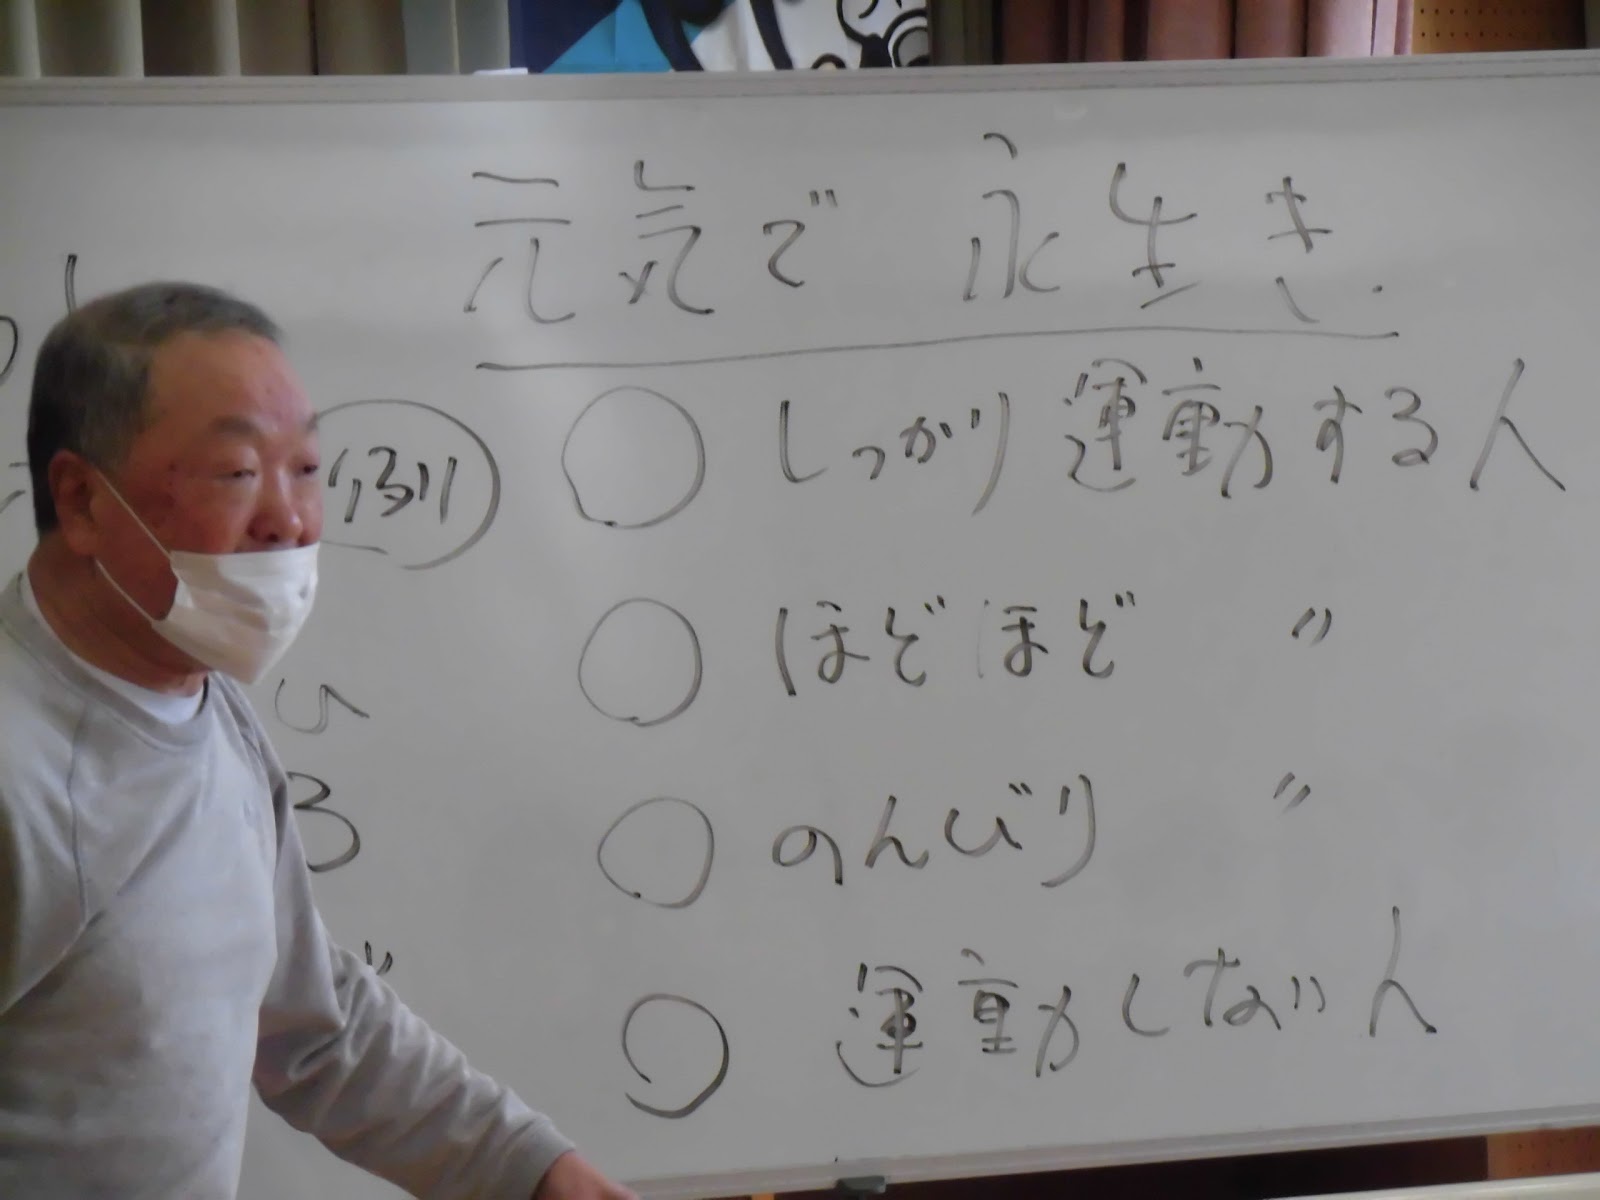 元気で 永生き.
しっかり運動する人
ほどほど 〃
のんびり 〃
運動しない人